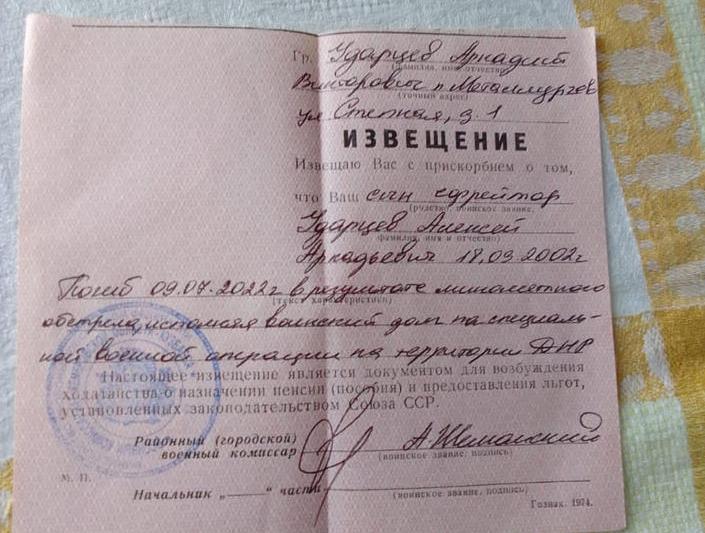 Гр. Ударцев Аркадий
(фамилия, имя, отчество)
Викторович п. Металлургов
(точный адрес)
ул Степная, д. 1
ИЗВЕЩЕНИЕ
Извещаю Вас с прискорбием о том,
что Ваш сын ефрейтор
(родство, воинское звание,
Ударцев Алексей
фамилия, имя и отчество)
Аркадьевич 18.03.2002г
Погиб 09.07.2022г в результате минометного
(текст характеристика)
обстрела, исполняя воинский долг на специаль-
ной военной операции на территории ДНР
Настоящее извещение является документом для возбуждения
ходатайства о назначении пенсии (пособия) и предоставления льгот,
установленных законодательством Союза ССР.
Районный (городской)
военный комиссар А. Шеманский
(воинское звание, подпись)
М. П.
Начальник „ “ части
(воинское звание, подпись)
Гознак. 1974.